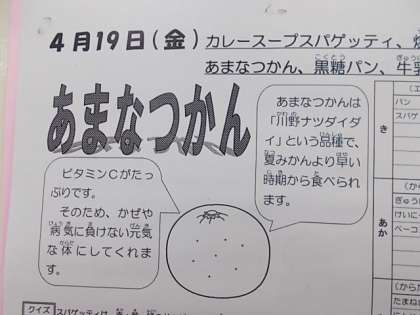 4月19日(金) カレースープスパゲッティ、
あまなつかん、黒糖パン、牛乳
あまなつかん
あまなつかんは
「川野ナツダイダ
イ」という品種で、
夏みかんより早い
時期から食べられ
ます。
ビタミンCがたっ
ぷりです。
そのため、かぜや
病気に負けない元気
な体にしてくれま
す。
き
パン
スパゲ
あか
ぎゅう
けいに
ベーコ
(から
たまね
クイズ